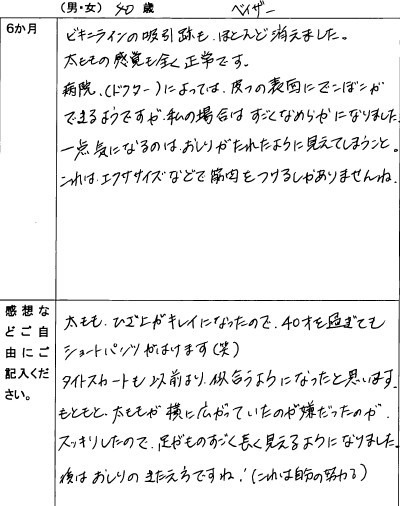 (男・女) 40 歳 ベイザー
6か月
ビキニラインの吸引跡も、ほとんど消えました。
太ももの感覚も全く正常です。
病院、(ドクター)によっては、皮フの表面にでこぼこが
できるようですが、私の場合は すごくなめらかになりました。
一点気になるのは、おしりがたれたように見えてしまうこと。
これは、エクササイズなどで筋肉をつけるしかありませんね。
感想など ご自由にご記入ください。
太もも、ひざ上がキレイになったので、40才を過ぎても
ショートパンツがはけます(笑)
タイトスカートも 以前より、似合うようになったと思います。
もともと、太ももが 横に広がっていたのが嫌だったのが、
スッキリしたので、足がものすごく長く見えるようになりました。
後は おしりの きたえろですね!(これは自分の努力る)